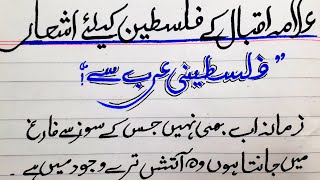 علامہ اقبال کے فلسطین کیلئے اشعار
"فلسطینی عرب سے"!
زمانہ اب بھی نہیں جس کے سوز سے فارغ
میں جانتا ہوں وہ آتش ترے وجود میں ہے ۔